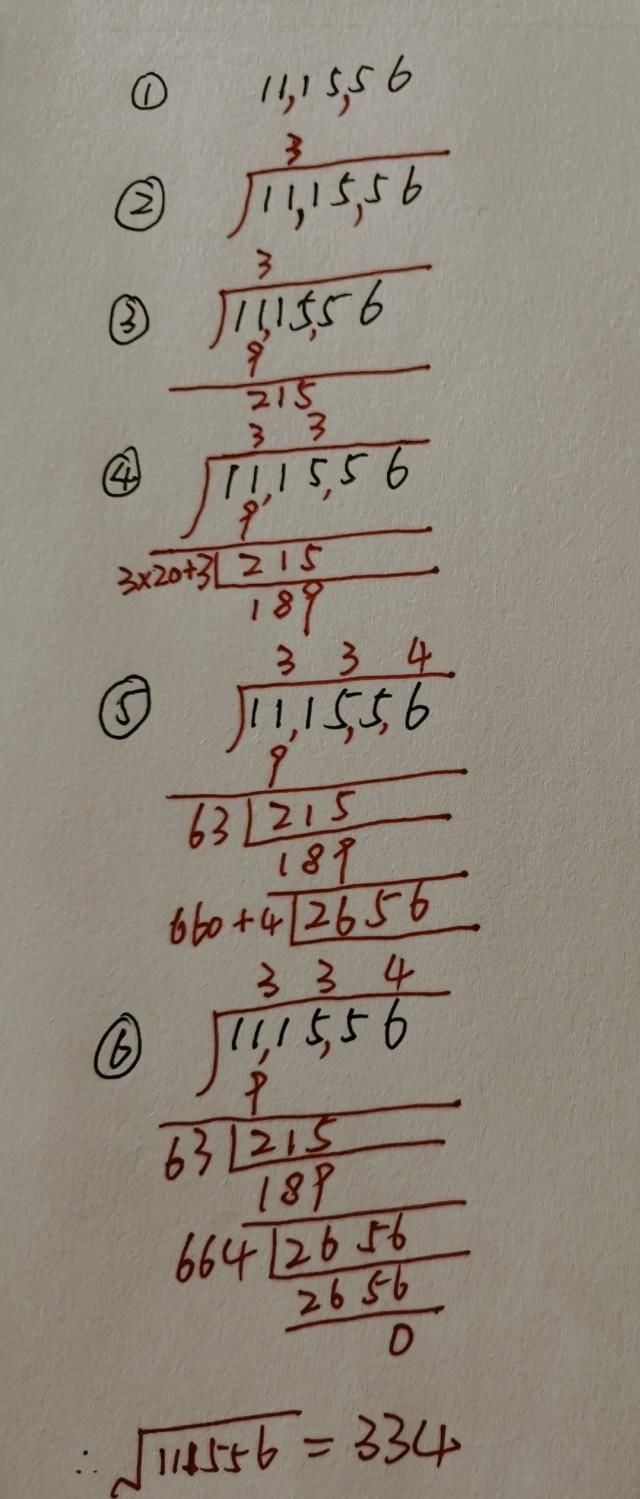 ① 11,15,56
3
② √11,15,56
3
③ √11,15,56
9
215
3 3
④ √11,15,56
9
3×20+3 215
189
3 3 4
⑤ √11,15,5,6
9
63 215
189
660+4 2656
3 3 4
⑥ √11,15,56
9
63 215
189
664 2656
2656
0
∴ √111556 = 334